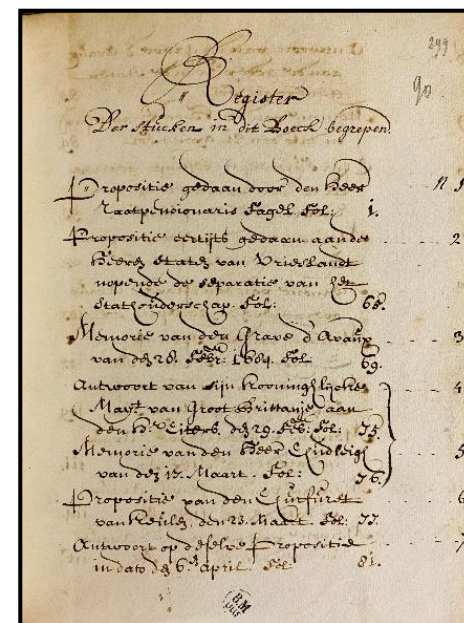 299
90
Register
Der Stucken in dit Boeck begrepen.
Propositie gedaan door den Heer N 1
Raatpensionaris Fagel Fol: 1.
Propositie eertijts gedaan aande 2
Heeren Staten van Vrieslandt
nopende de separatie van het
Stathouderschap. Fol: 68.
Memorie van den Grave d'Avaux 3
van den 28. Febr: 1684. Fol 69.
Antwoort van sijn Kooninghlycke 4
Mayt. van Groot Brittanje aan
den Hr. Citers. den 29. Feb: Fol: 75.
Memorie van den Heer Chudleigh 5
van den 17. Maart. Fol: 76.
Propositie van den Churfurst 6
van Keulen, den 23. Maart Fol: 77.
Antwoort op deselve Propositie 7
in dato den 6en. April. Fol: 81.